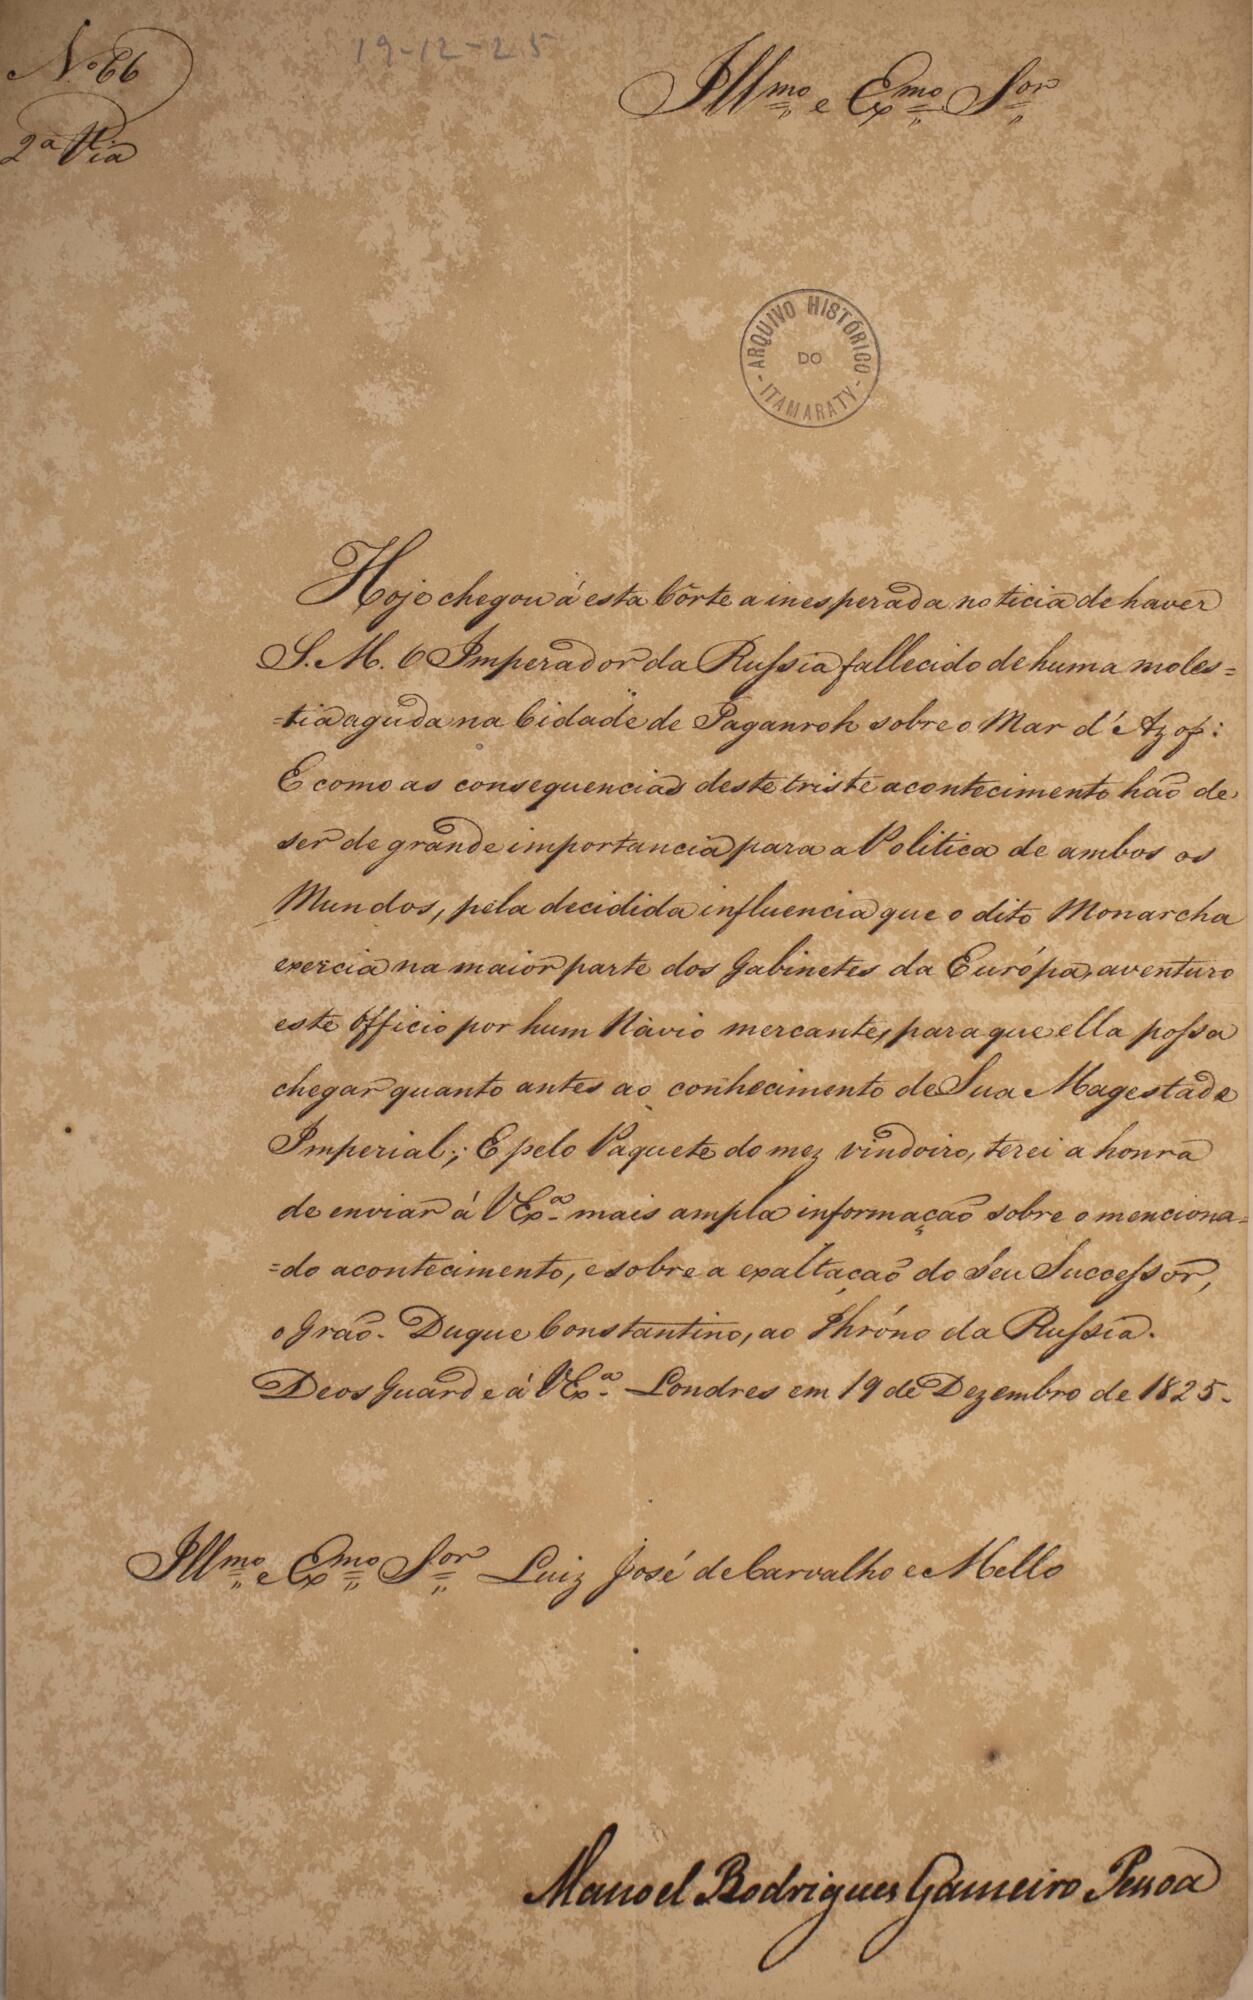 19-12-25
N.º 66
2ª Via
Illmo e Exmo Sor
ARQUIVO HISTÓRICO
DO
ITAMARATY
Hoje chegou á esta Côrte a inesperada noticia de haver
S. M. O Imperador da Russia fallecido de huma moles=
=tia aguda na Cidade de Taganroh sobre o Mar d'Azof:
E como as consequencias deste triste acontecimento hão de
ser de grande importancia para a Politica de ambos os
Mundos, pela decidida influencia que o dito Monarcha
exercia na maior parte dos Gabinetes da Európa, aventuro
este Officio por hum Návio mercante, para que ella possa
chegar quanto antes ao conhecimento de Sua Magestade
Imperial; E pelo Paquete do mez vindoiro, terei a honra
de enviar á VExª mais ampla informação sobre o menciona=
=do acontecimento, e sobre a exaltação do Seu Successor,
o Grão-Duque Constantino, ao Thróno da Russia.
Deos Guarde á VExª. Londres em 19 de Dezembro de 1825.
Illmo e Exmo Sor Luiz José de Carvalho e Mello
Manoel Rodrigues Gameiro Pessoa